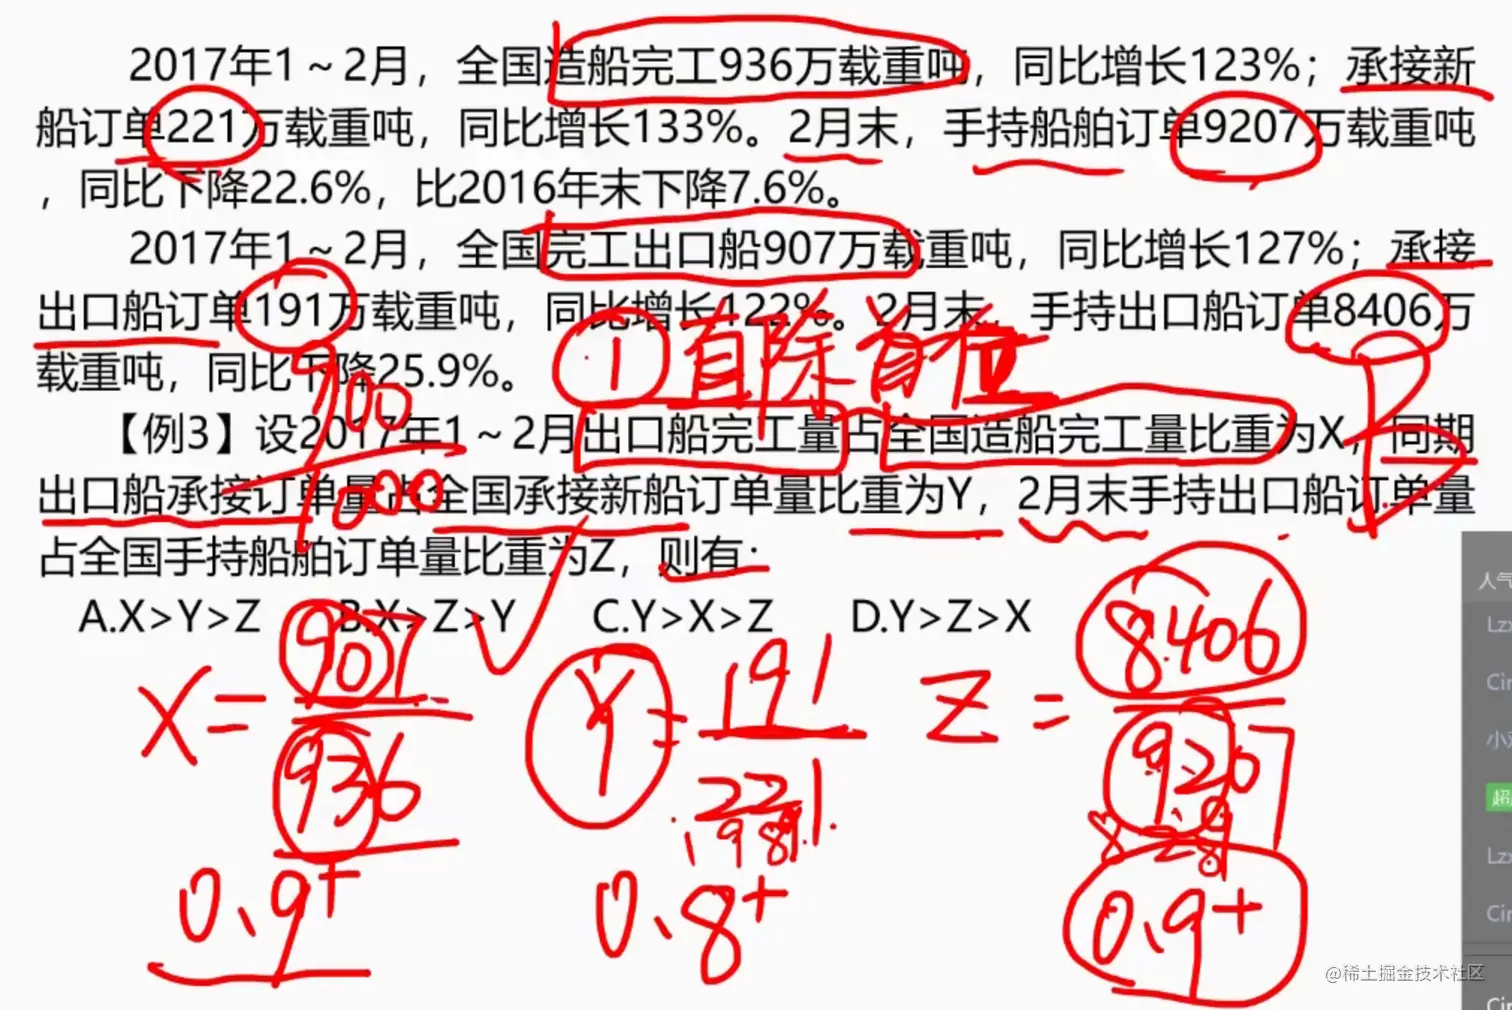 2017年1～2月，全国造船完工936万载重吨，同比增长123%；承接新
船订单221万载重吨，同比增长133%。2月末，手持船舶订单9207万载重吨
，同比下降22.6%，比2016年末下降7.6%。
2017年1～2月，全国完工出口船907万载重吨，同比增长127%；承接
出口船订单191万载重吨，同比增长122%。2月末，手持出口船订单8406万
载重吨，同比下降25.9%。
① 直除 首位
900
1000
【例3】设2017年1～2月出口船完工量占全国造船完工量比重为X，同期
出口船承接订单量占全国承接新船订单量比重为Y，2月末手持出口船订单量
占全国手持船舶订单量比重为Z，则有：
A.X>Y>Z B.X>Z>Y C.Y>X>Z D.Y>Z>X
X= 907 Y= 191 Z= 8406
936 221 9207
1989
0.9+ 0.8+ 0.9+
人气
Lzx
Cin
超
Lzx
Cin
@稀土掘金技术社区
Cin